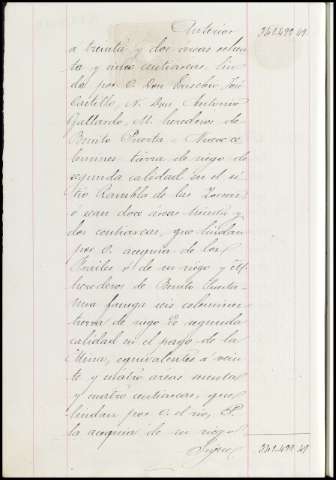 Anterior 361.499 49
a treinta y dos areas sesen
ta y una centiareas, lin
da por O. Don Eusebio José
Castillo, N. Don Antonio
Gallardo, M. herederos de
Benito Puerta = Nueve ce
lemines tierra de riego de
segunda calidad en el si
tio Rambla de las
o sean doce areas treinta y
dos centiareas, que lindan
por O. acequia de los
Frailes ó de su riego y
herederos de Benito Puerta =
una fanega seis celemines
tierra de riego de segunda
calidad en el pago de la
equivalentes á vein
te y cuatro areas sesenta
y cuatro centiareas, que
lindan por O. el rio, P.
la acequia de su riego
Sigue 361.499 49